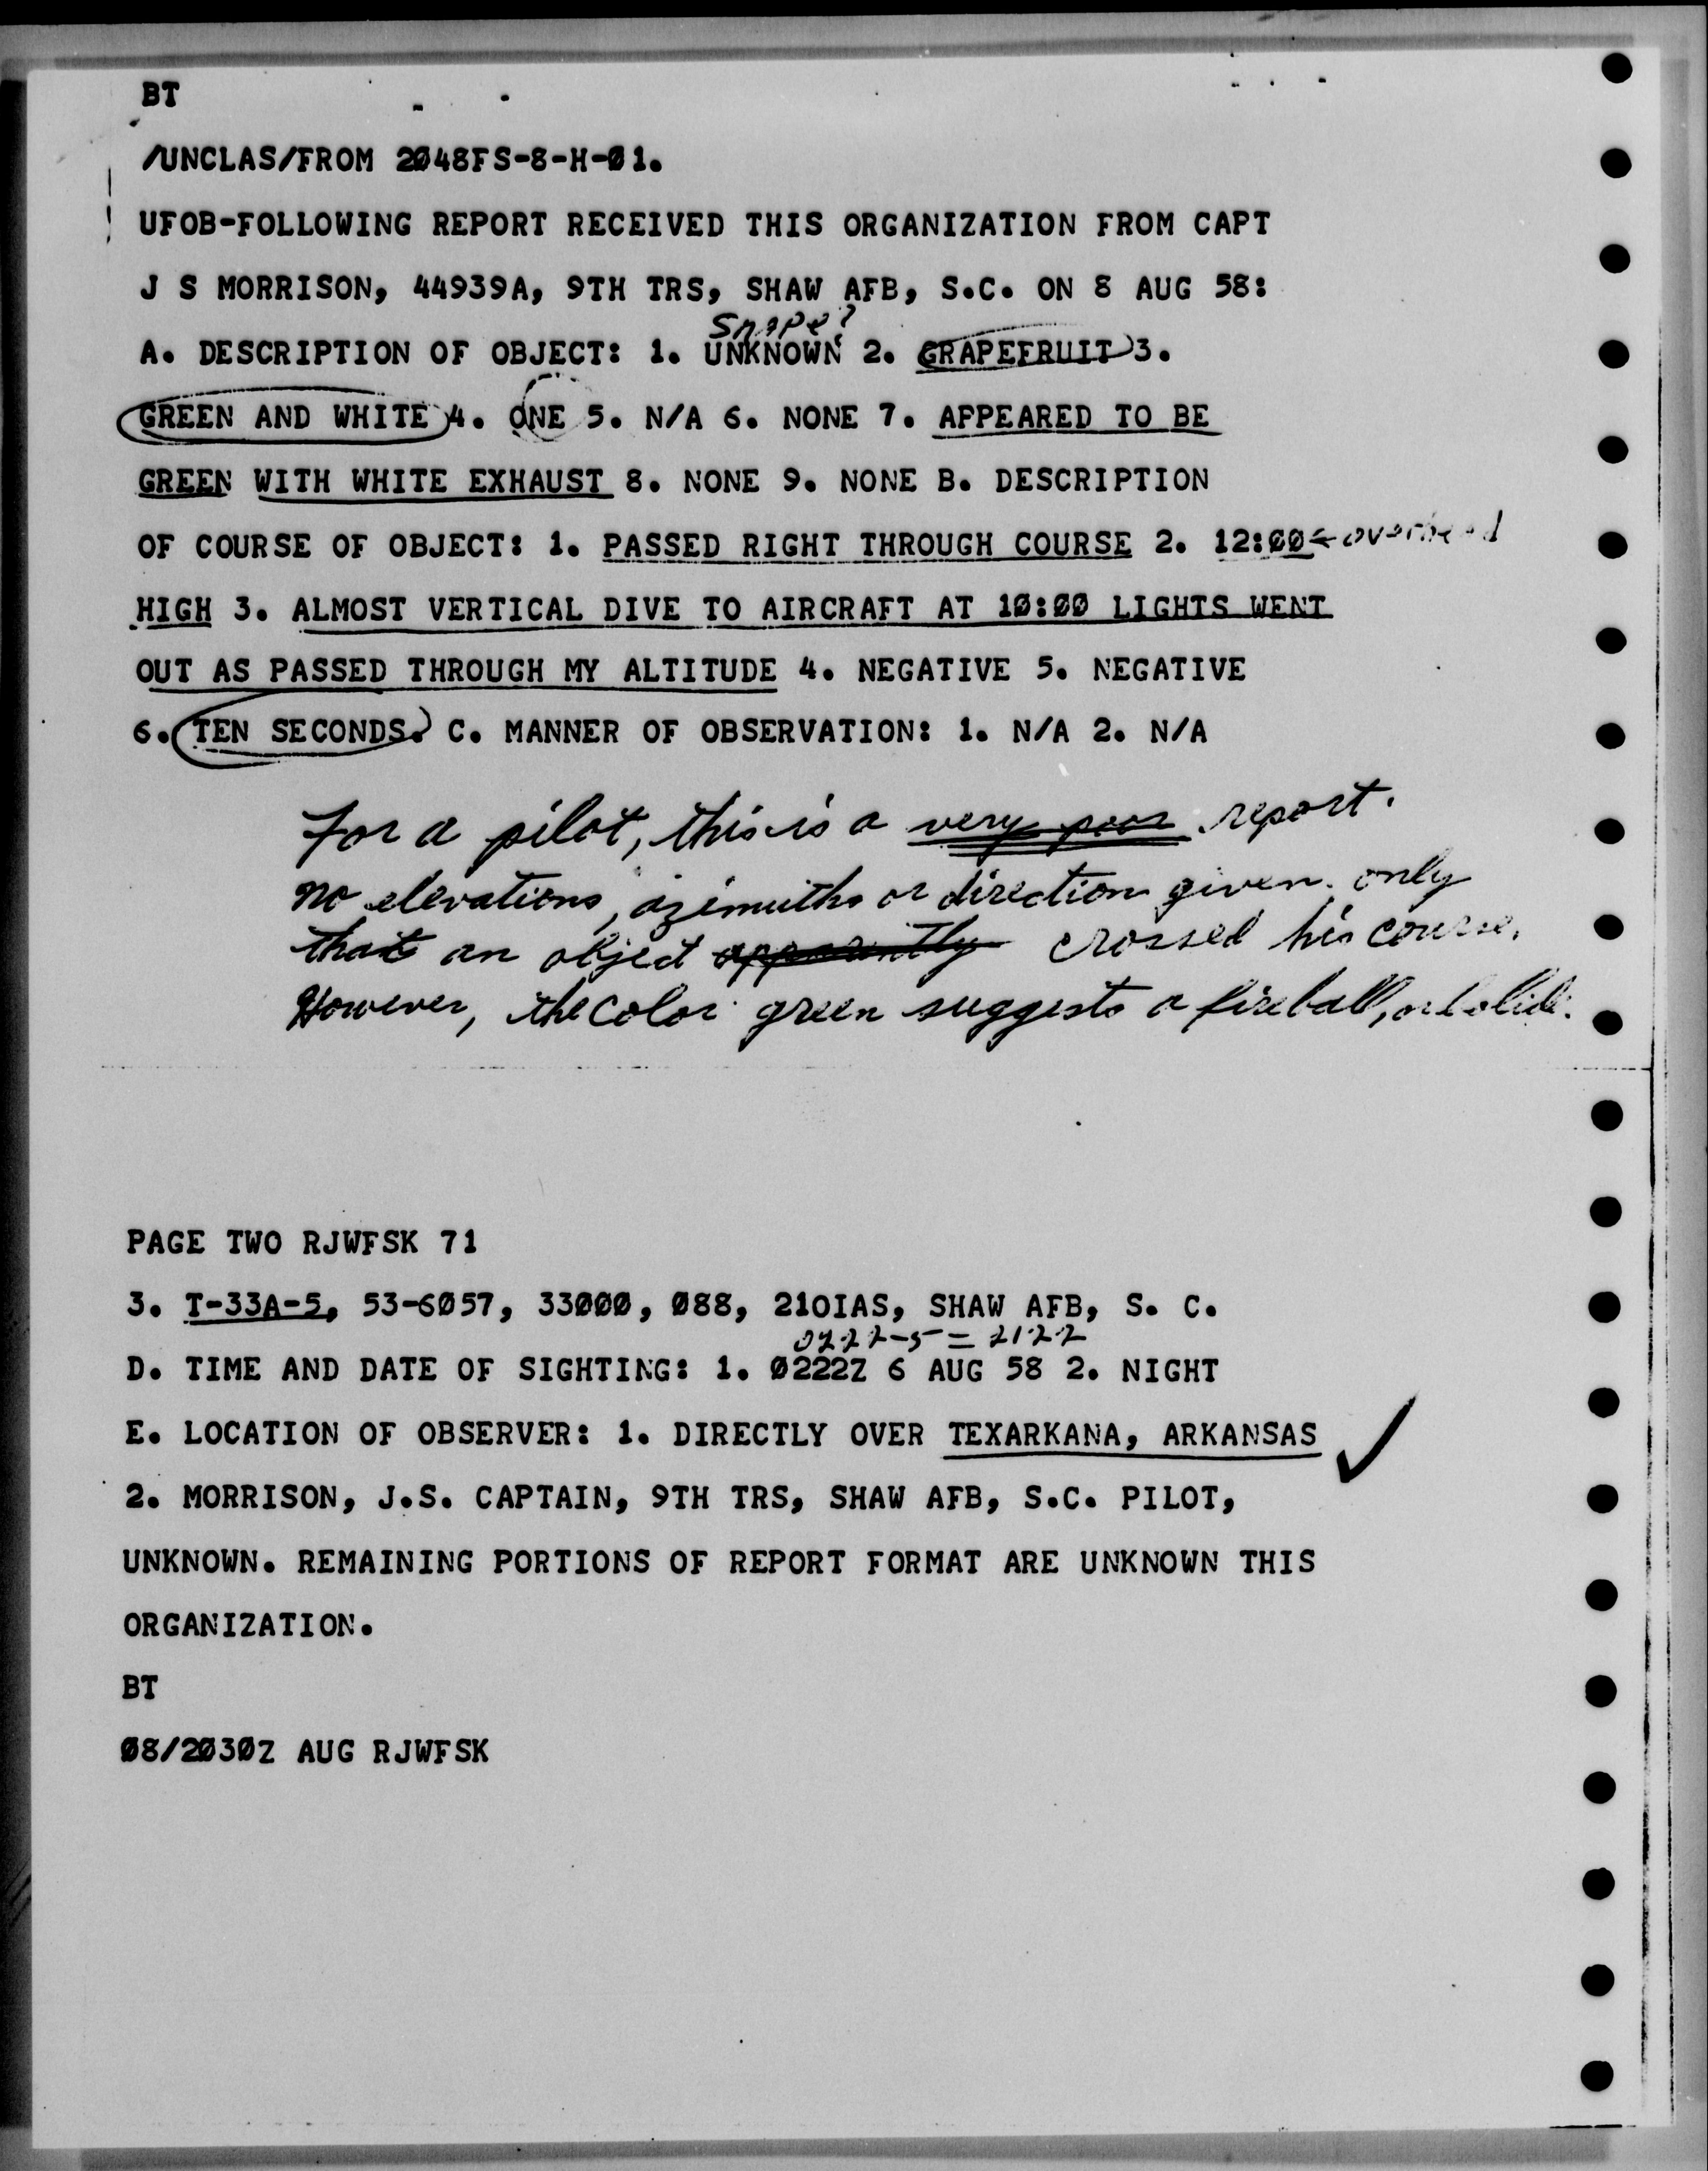 BT
/UNCLAS/FROM 2048FS-8-H-01.
UFOB-FOLLOWING REPORT RECEIVED THIS ORGANIZATION FROM CAPT
J S MORRISON, 44939A, 9TH TRS, SHAW AFB, S.C. ON 8 AUG 58:
Shape?
A. DESCRIPTION OF OBJECT: 1. UNKNOWN 2. GRAPEFRUIT 3.
GREEN AND WHITE 4. ONE 5. N/A 6. NONE 7. APPEARED TO BE
GREEN WITH WHITE EXHAUST 8. NONE 9. NONE B. DESCRIPTION
OF COURSE OF OBJECT: 1. PASSED RIGHT THROUGH COURSE 2. 12:00 ← overhead
HIGH 3. ALMOST VERTICAL DIVE TO AIRCRAFT AT 10:00 LIGHTS WENT
OUT AS PASSED THROUGH MY ALTITUDE 4. NEGATIVE 5. NEGATIVE
6. TEN SECONDS. C. MANNER OF OBSERVATION: 1. N/A 2. N/A
For a pilot, this is a very poor report.
No elevations, azimuths or direction given. only
that an object apparently crossed his course.
However, the color green suggests a fireball, or bolide.
PAGE TWO RJWFSK 71
3. T-33A-5, 53-6057, 33000, 088, 210IAS, SHAW AFB, S. C.
0222-5 = 2122
D. TIME AND DATE OF SIGHTING: 1. 0222Z 6 AUG 58 2. NIGHT
E. LOCATION OF OBSERVER: 1. DIRECTLY OVER TEXARKANA, ARKANSAS ✓
2. MORRISON, J.S. CAPTAIN, 9TH TRS, SHAW AFB, S.C. PILOT,
UNKNOWN. REMAINING PORTIONS OF REPORT FORMAT ARE UNKNOWN THIS
ORGANIZATION.
BT
08/2030Z AUG RJWFSK